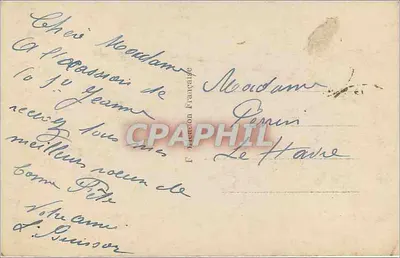 Chère Madame
A l'occasion de
la St Jeanne
recevez tous mes
meilleurs voeux de
bonne Fête
Votre amie
L. Buisson
Madame
Perrin
Le Havre
Fabrication Française
CPAPHIL